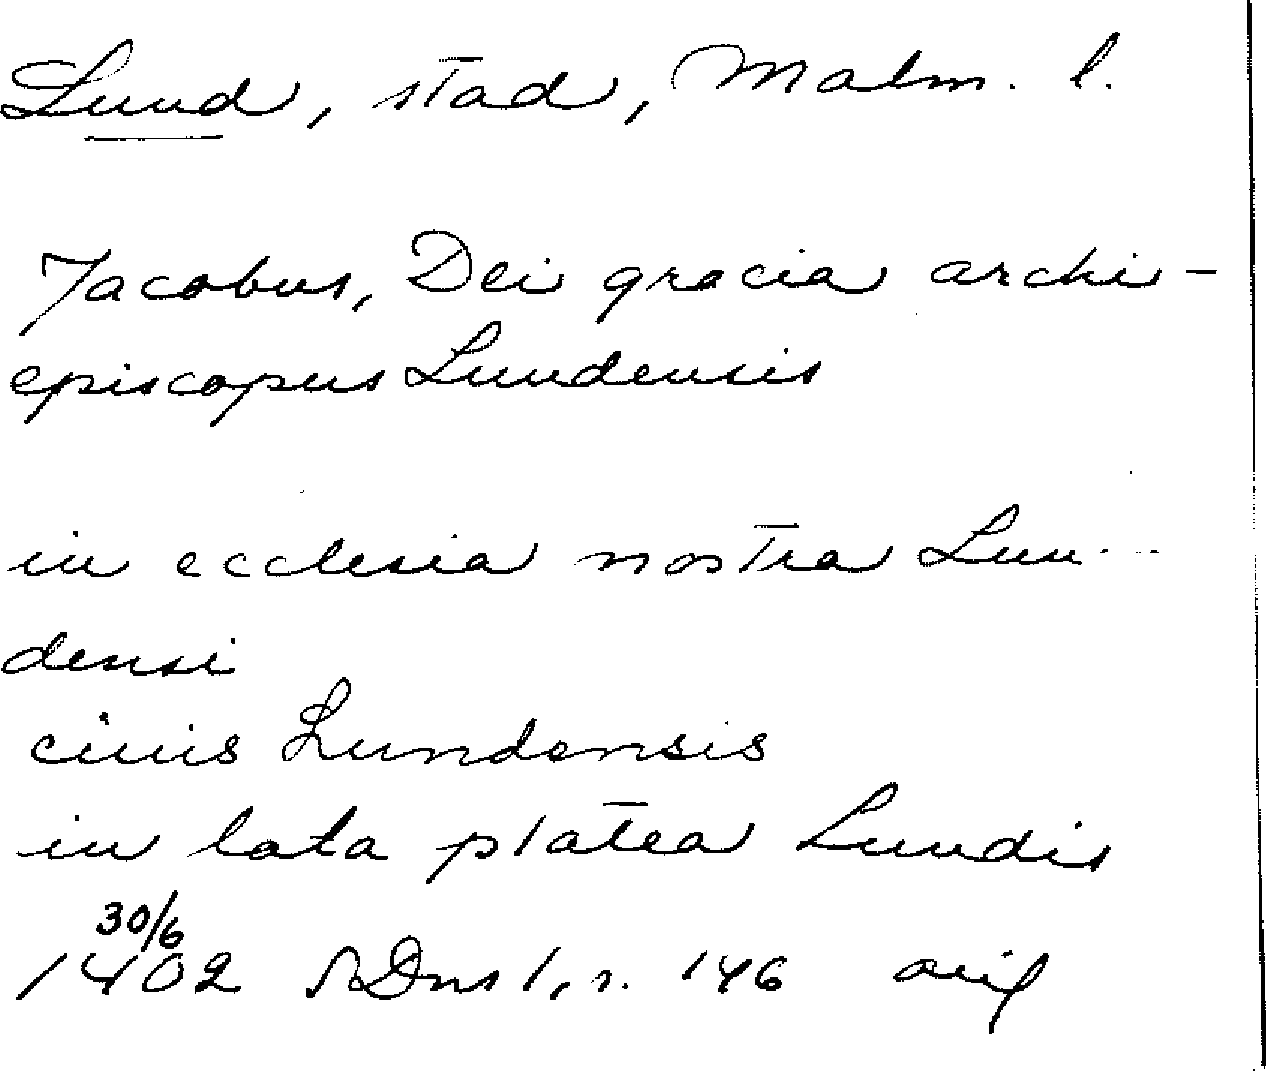 Lund, stad, Malm. l.
Jacobus, Dei gracia archi-
episcopus Lundensis
in ecclesia nostra Lun-
densi
ciuis Lundensis
in lata platea Lundis
30/6
1402 SDns 1, s. 146 orig